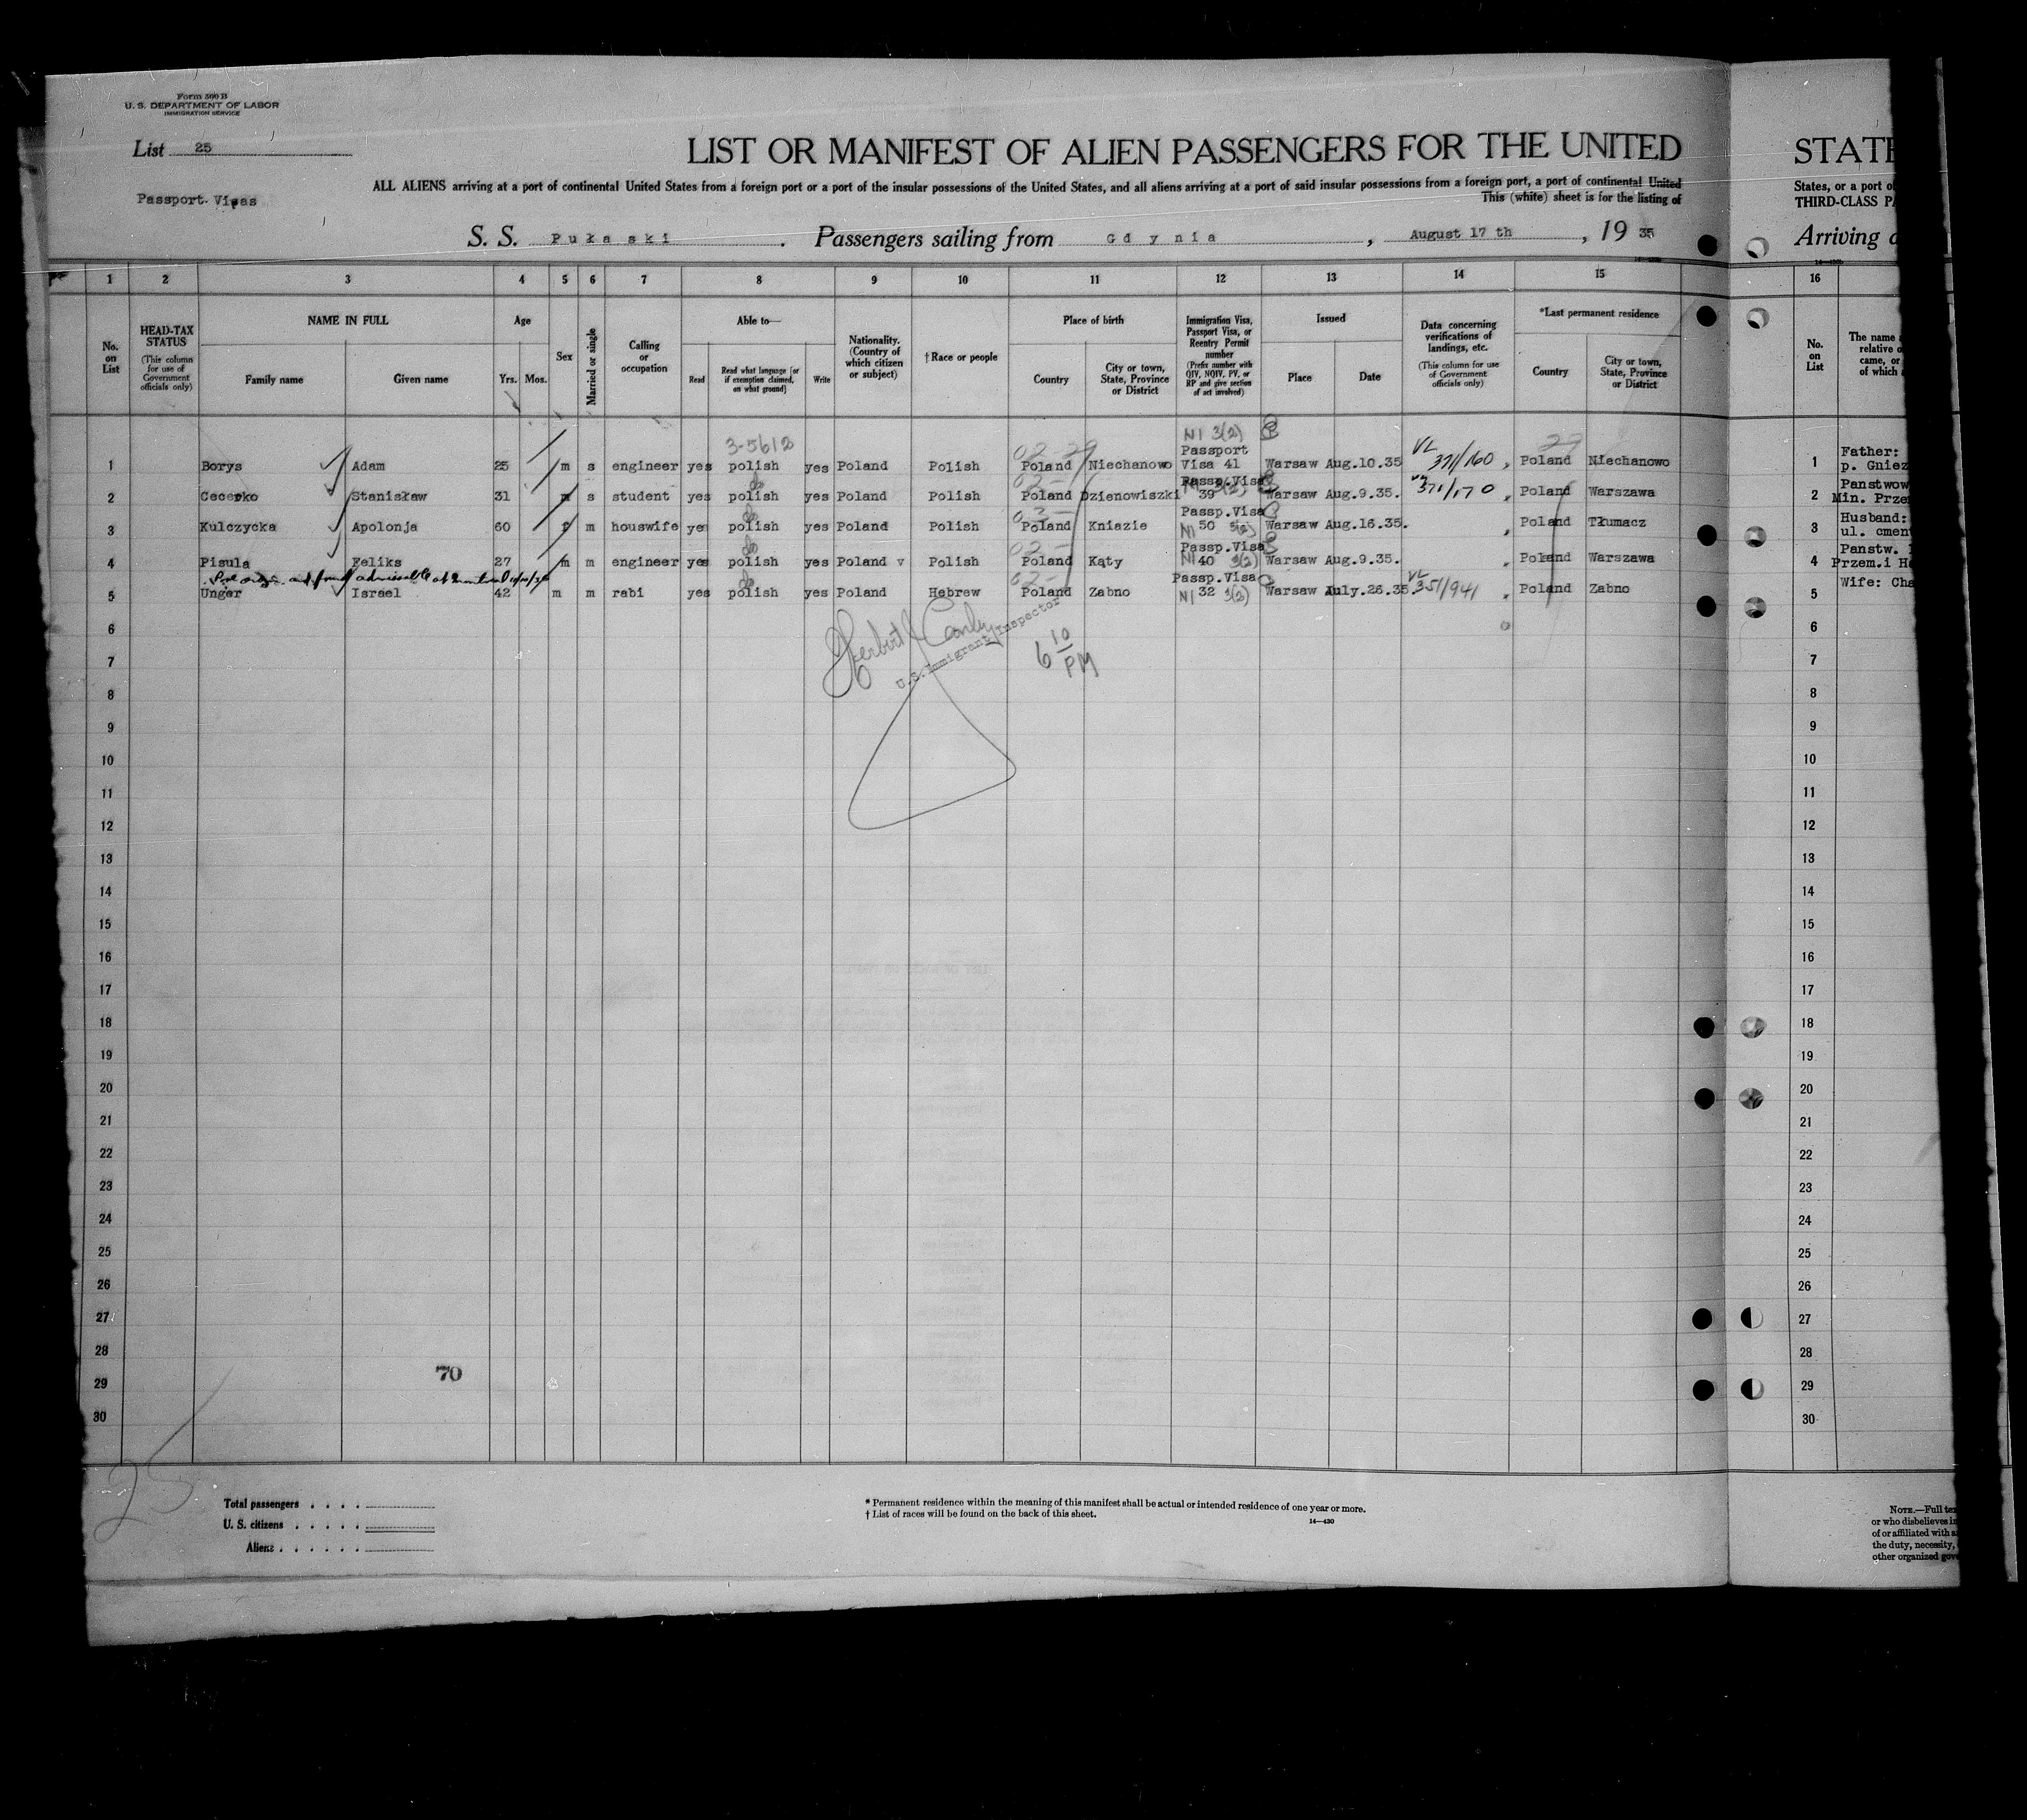 Form 500 B
U. S. DEPARTMENT OF LABOR
IMMIGRATION SERVICE
List 25
Passport Visas
LIST OR MANIFEST OF ALIEN PASSENGERS FOR THE UNITED
ALL ALIENS arriving at a port of continental United States from a foreign port or a port of the insular possessions of the United States, and all aliens arriving at a port of said insular possessions from a foreign port, a port of continental United
This (white) sheet is for the listing of
S. S. Pułaski . Passengers sailing from Gdynia , August 17 th , 19 35
1 2 3 4 5 6 7 8 9 10 11 12 13 14 15
No. on List
HEAD-TAX STATUS (This column for use of Government officials only)
NAME IN FULL Family name Given name
Age Yrs. Mos.
Sex
Married or single
Calling or occupation
Able to— Read Read what language [or if exemption claimed, on what ground] Write
Nationality. (Country of which citizen or subject)
† Race or people
Place of birth Country City or town, State, Province or District
Immigration Visa, Passport Visa, or Reentry Permit number (Prefix number with QIV, NQIV, PV, or RP and give section of act involved)
Issued Place Date
Data concerning verifications of landings, etc. (This column for use of Government officials only)
*Last permanent residence Country City or town, State, Province or District
3-5612 02-29 NI 3(2) VL 29
1 Borys Adam 25 m s engineer yes polish yes Poland Polish Poland Niechanowo Passport Visa 41 Warsaw Aug.10.35 371/160 Poland Niechanowo
2 Stanisław 31 m s student yes polish yes Poland Polish Poland Dzienowiszki Passp.Visa 39 Warsaw Aug.9.35. 371/170 Poland Warszawa
3 Kulczycka Apolonja 60 f m houswife yes polish yes Poland Polish Poland Kniazie Passp.Visa NI 50 Warsaw Aug.16.35. Poland Tłumacz
4 Pisula Feliks 27 m m engineer yes polish yes Poland v Polish Poland Kąty Passp.Visa NI 40 3(2) Warsaw Aug.9.35. Poland Warszawa
and found admissable at
5 Unger Israel 42 m m rabi yes polish yes Poland Hebrew Poland Zabno Passp.Visa NI 32 3(2) Warsaw July.26.35. VL 351/941 Poland Zabno
6
Herbert
U.S. Immigrant Inspector
6 10 PM
7
8
9
10
11
12
13
14
15
16
17
18
19
20
21
22
23
24
25
26
27
28
70
29
30
25
Total passengers . . . .
U. S. citizens . . . . .
Aliens . . . . . .
* Permanent residence within the meaning of this manifest shall be actual or intended residence of one year or more.
† List of races will be found on the back of this sheet.
14—430
STATE
States, or a port o
THIRD-CLASS PA
Arriving a
16
No. on List
The name
relative o
came, or
of which
1 Father:
p. Gniez
2 Panstwow
Min. Prze
3 Husband:
ul. cmen
4 Panstw.
Przem.i H
5 Wife: Cha
6
7
8
9
10
11
12
13
14
15
16
17
18
19
20
21
22
23
24
25
26
27
28
29
30
NOTE.—Full te
or who disbelieves in
of or affiliated with a
the duty, necessity,
other organized gove